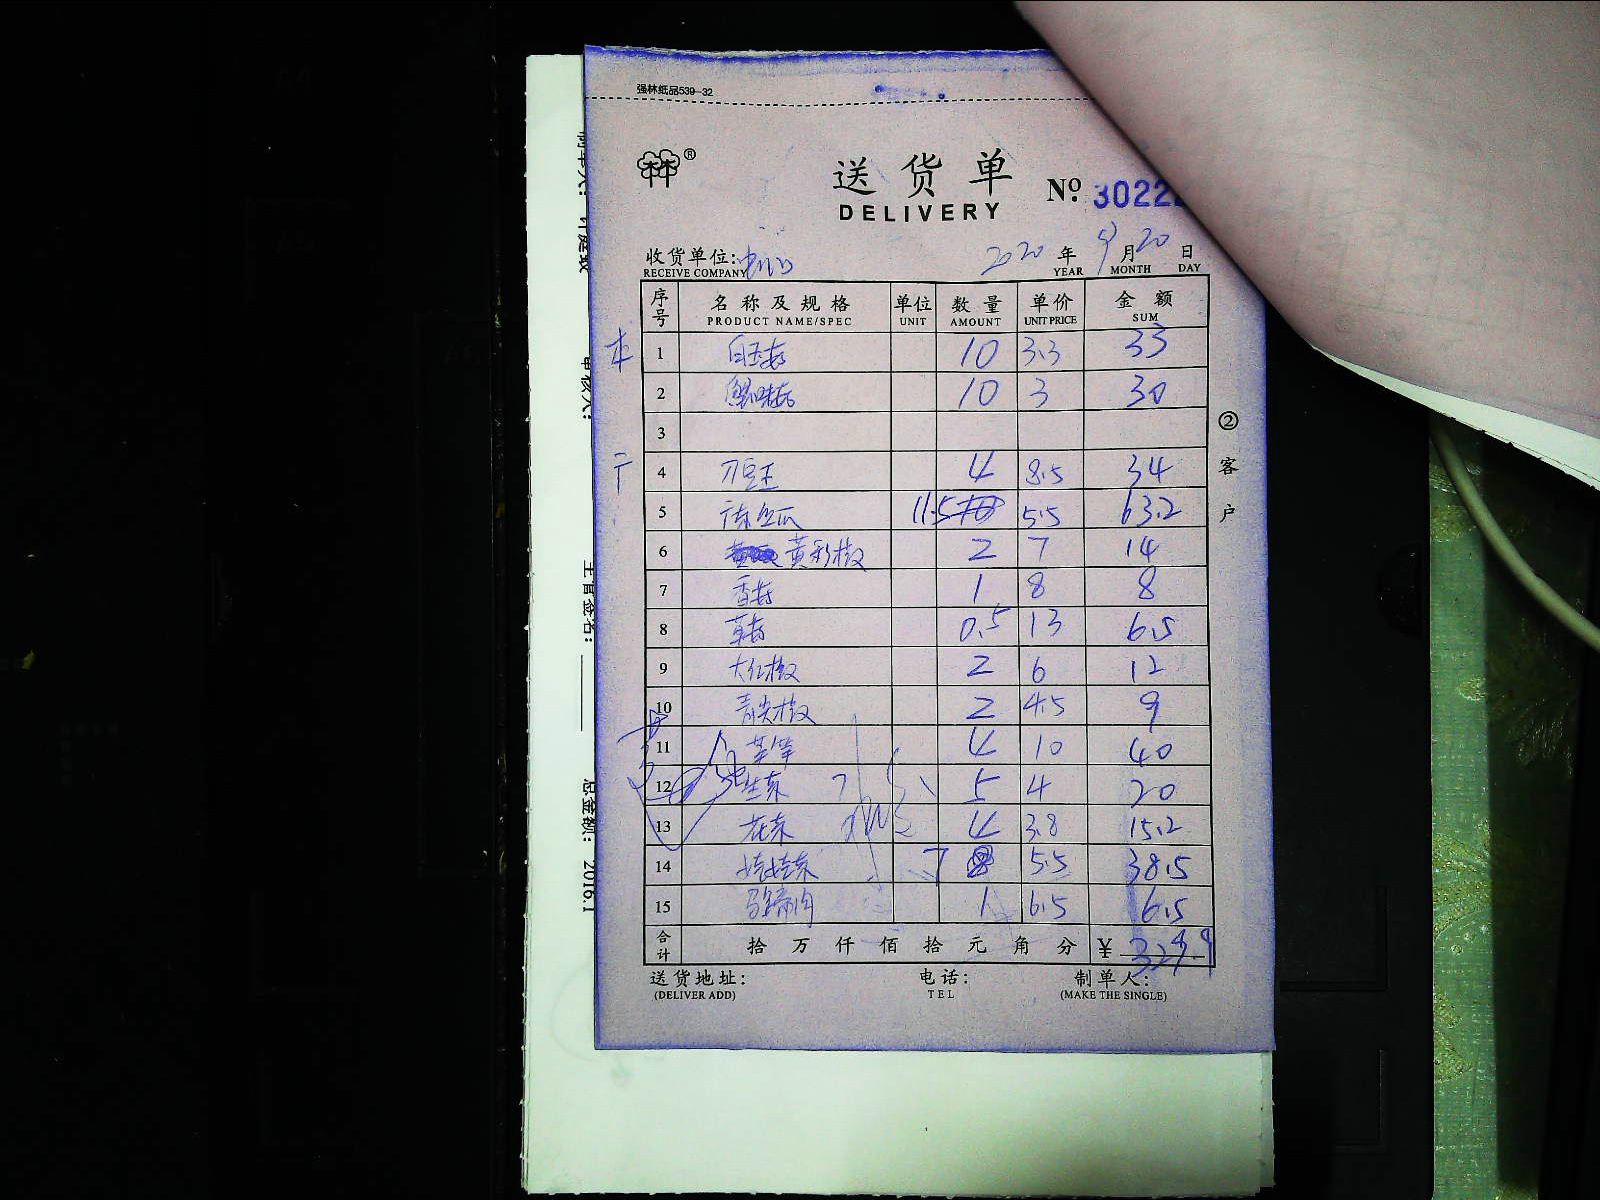 强林纸品539-32
林®
送货单
DELIVERY
Nº: 3022
收货单位:
RECEIVE COMPANY
2020 年 9 月 20 日
YEAR MONTH DAY
序号 名称及规格 单位 数量 单价 金额
PRODUCT NAME/SPEC UNIT AMOUNT UNIT PRICE SUM
1 白玉菇 10 3.3 33
2 蟹味菇 10 3 30
3
4 刀豆王 4 8.5 34
5 丝瓜 11.5 5.5 63.2
6 黄彩椒 2 7 14
7 香菇 1 8 8
8 草菇 0.5 13 6.5
9 大红椒 2 6 12
10 青尖椒 2 4.5 9
11 4 10 40
12 生菜 5 4 20
13 花菜 4 3.8 15.2
14 娃娃菜 7 5.5 38.5
15 马蹄肉 1 6.5 6.5
合计 拾万仟佰拾元角分 ¥ 329.9
送货地址: 电话: 制单人:
(DELIVER ADD) TEL (MAKE THE SINGLE)
② 客户
审核人:
主管签名:
总金额: 2016.1